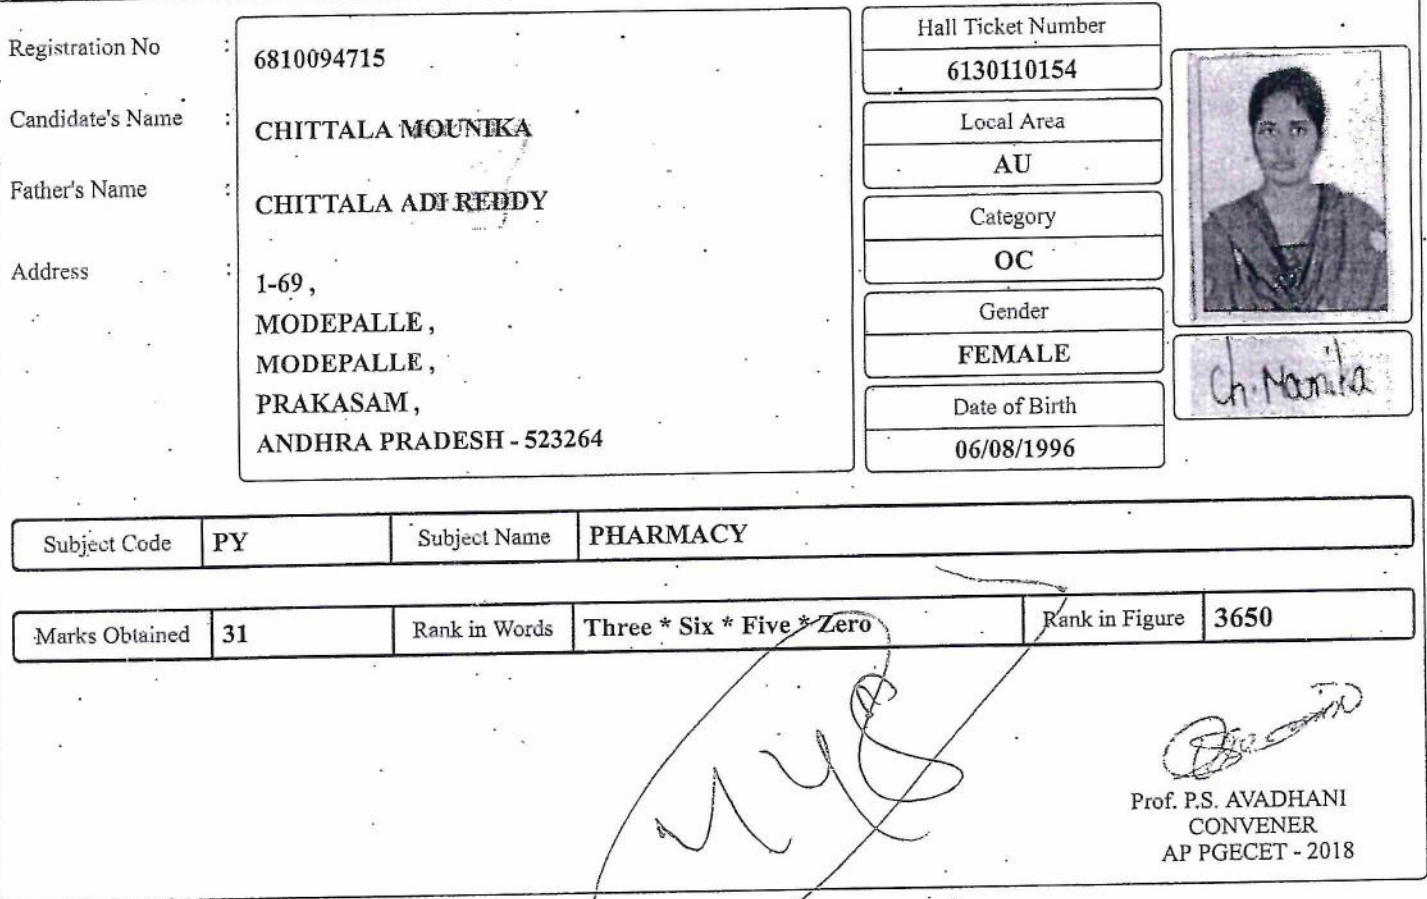 Registration No : 6810094715
Candidate's Name : CHITTALA MOUNIKA
Father's Name : CHITTALA ADI REDDY
Address : 1-69 ,
MODEPALLE ,
MODEPALLE ,
PRAKASAM ,
ANDHRA PRADESH - 523264
Hall Ticket Number
6130110154
Local Area
AU
Category
OC
Gender
FEMALE
Date of Birth
06/08/1996
Ch. Mounika
Subject Code PY Subject Name PHARMACY
Marks Obtained 31 Rank in Words Three * Six * Five * Zero Rank in Figure 3650
Prof. P.S. AVADHANI
CONVENER
AP PGECET - 2018